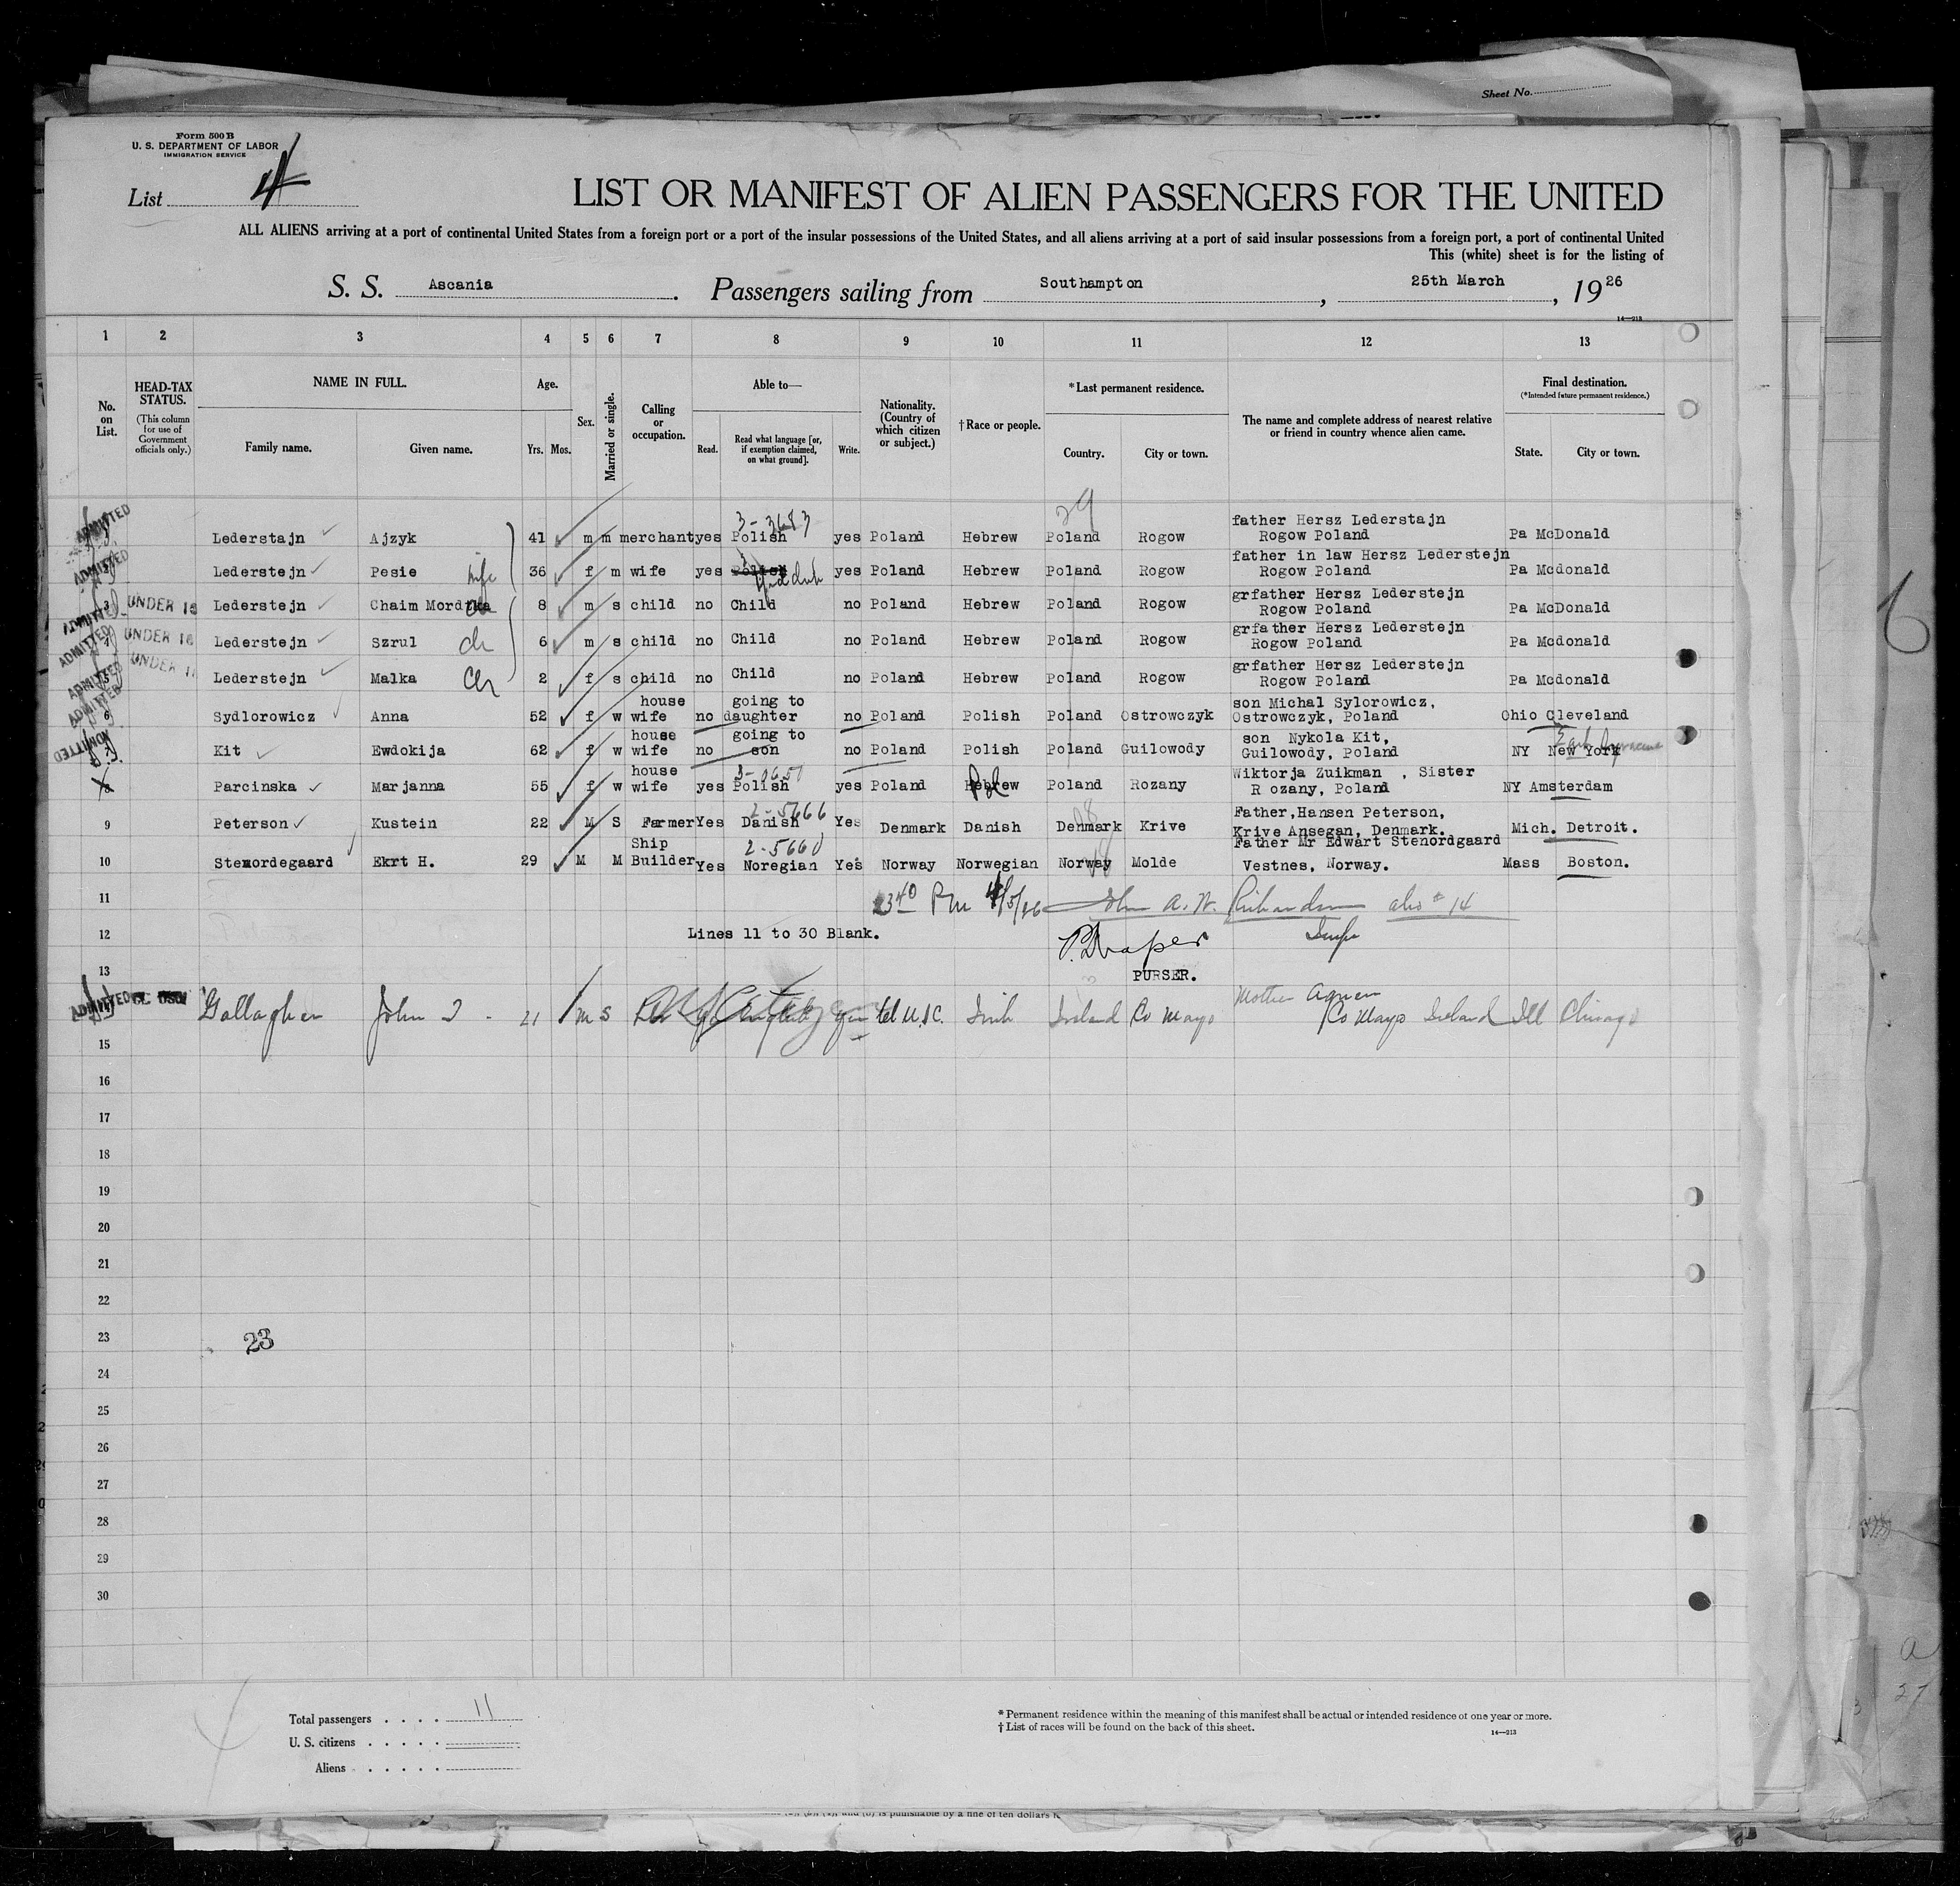 Sheet No.
Form 500 B
U. S. DEPARTMENT OF LABOR
IMMIGRATION SERVICE
List 4
LIST OR MANIFEST OF ALIEN PASSENGERS FOR THE UNITED
ALL ALIENS arriving at a port of continental United States from a foreign port or a port of the insular possessions of the United States, and all aliens arriving at a port of said insular possessions from a foreign port, a port of continental United
This (white) sheet is for the listing of
S. S. Ascania. Passengers sailing from Southampton, 25th March, 1926
14—213
1 2 3 4 5 6 7 8 9 10 11 12 13
No. on List.
HEAD-TAX STATUS.
(This column for use of Government officials only.)
NAME IN FULL.
Family name. Given name.
Age.
Yrs. Mos.
Sex.
Married or single.
Calling or occupation.
Able to—
Read. Read what language [or, if exemption claimed, on what ground]. Write.
Nationality. (Country of which citizen or subject.)
†Race or people.
*Last permanent residence.
Country. City or town.
The name and complete address of nearest relative or friend in country whence alien came.
Final destination.
(*Intended future permanent residence.)
State. City or town.
29
3-3683
ADMITTED Lederstajn Ajzyk 41 m m merchant yes Polish yes Poland Hebrew Poland Rogow father Hersz Lederstajn Rogow Poland Pa McDonald
ADMITTED Lederstejn Pesie wife 36 f m wife yes yes Poland Hebrew Poland Rogow father in law Hersz Lederstejn Rogow Poland Pa Mcdonald
ADMITTED 3 UNDER 16 Lederstejn Chaim Mordtka 8 m s child no Child no Poland Hebrew Poland Rogow grfather Hersz Lederstejn Rogow Poland Pa McDonald
ADMITTED UNDER 16 Lederstejn Szrul Ch 6 m s child no Child no Poland Hebrew Poland Rogow grfather Hersz Lederstejn Rogow Poland Pa Mcdonald
ADMITTED UNDER 1 Lederstejn Malka Ch 2 f s child no Child no Poland Hebrew Poland Rogow grfather Hersz Lederstejn Rogow Poland Pa Mcdonald
ADMITTED 6 Sydlorowicz Anna 52 f w house wife no going to daughter no Poland Polish Poland Ostrowczyk son Michal Sylorowicz, Ostrowczyk, Poland Ohio Cleveland
ADMITTED 7 Kit Ewdokija 62 f w house wife no going to son no Poland Polish Poland Guilowody son Nykola Kit, Guilowody, Poland NY New York
8 Parcinska Marjanna 55 f w house wife yes Polish yes Poland Hebrew Pol Poland Rozany Wiktorja Zuikman , Sister R ozany, Poland NY Amsterdam
9 Peterson Kustein 22 M S Farmer Yes 2-5666 Danish Yes Denmark Danish Denmark Krive Father,Hansen Peterson, Krive Ansegan, Denmark. Mich. Detroit.
10 Stenordegaard Ekrt H. 29 M M Ship Builder Yes 2-5660 Noregian Yes Norway Norwegian Norway Molde Father Mr Edwart Stenordgaard Vestnes, Norway. Mass Boston.
11 340 Pm 4/5/26 John A. W. Richardson also # 14
12 Lines 11 to 30 Blank. P. Draper Insp
13 PURSER.
ADMITTED Gallagher John J 21 m s U.S.C. Irish Ireland Co Mayo Mother Agnes Co Mayo Ireland Ill Chicago
15
16
17
18
19
20
21
22
23 23
24
25
26
27
28
29
30
Total passengers . . . . 11
U. S. citizens . . . . .
Aliens . . . . .
* Permanent residence within the meaning of this manifest shall be actual or intended residence of one year or more.
† List of races will be found on the back of this sheet.
14—213
and (b) is punishable by a fine of ten dollars
6